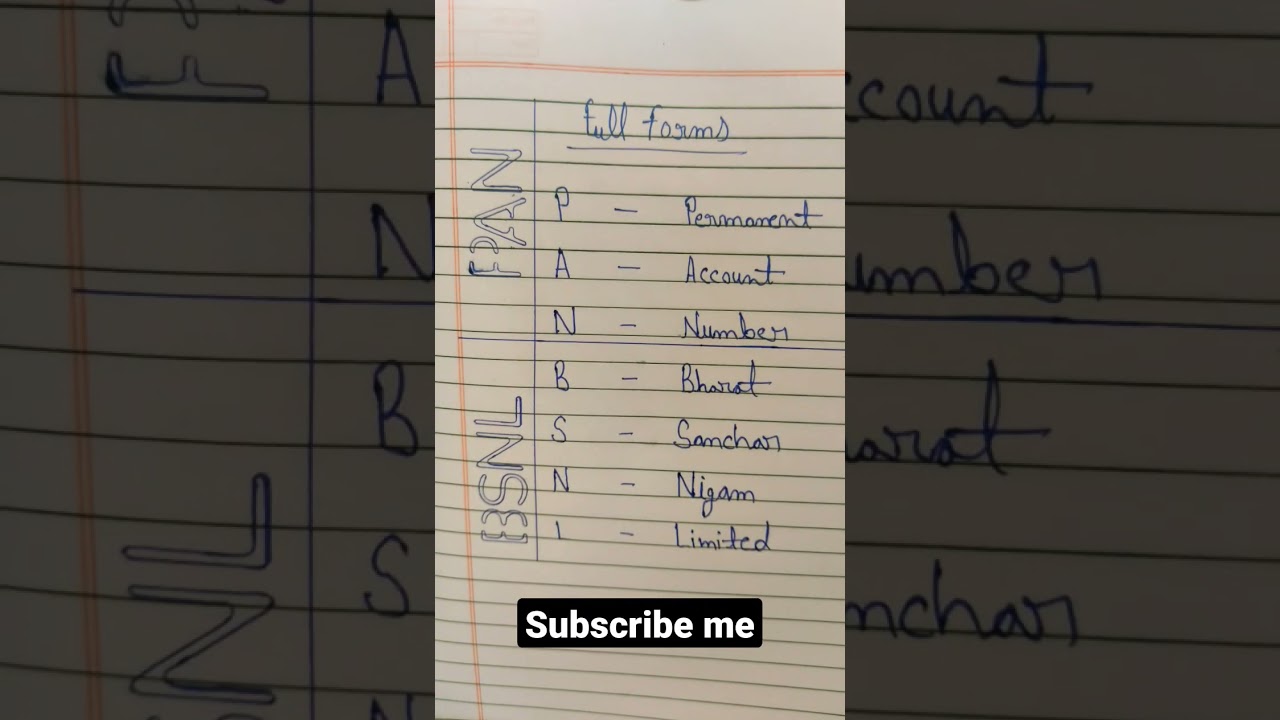 Full Forms
PAN
P - Permanent
A - Account
N - Number
BSNL
B - Bharat
S - Sanchar
N - Nigam
L - Limited
Subscribe me